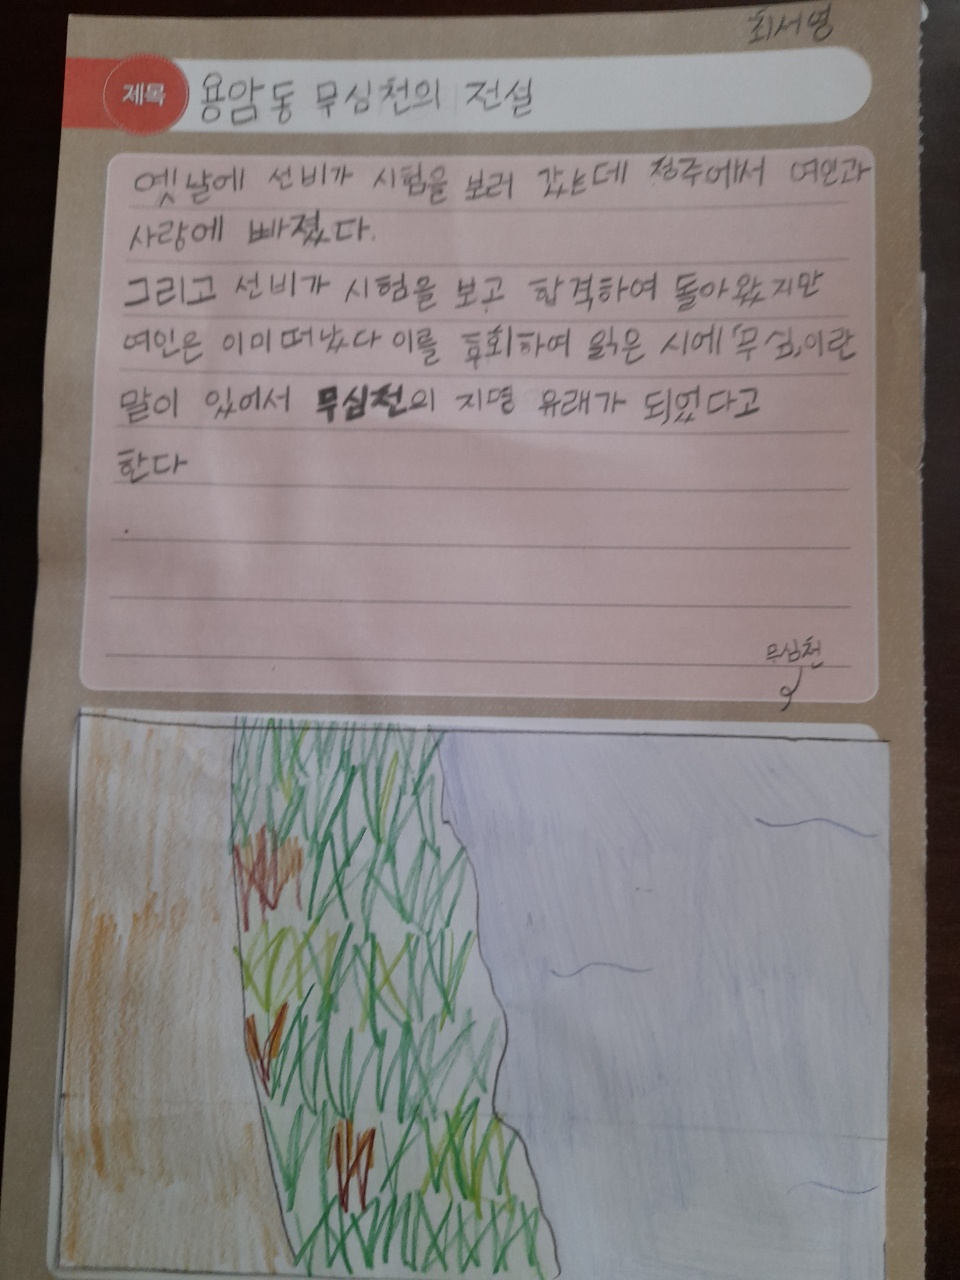 최서영
제목 용암동 무심천의 전설
옛날에 선비가 시험을 보러 갔는데 청주에서 여인과
사랑에 빠졌다.
그리고 선비가 시험을 보고 합격하여 돌아왔지만
여인은 이미 떠났다 이를 후회하여 읽은 시에「무심」이란
말이 있어서 무심천의 지명 유래가 되었다고
한다
.
무심천